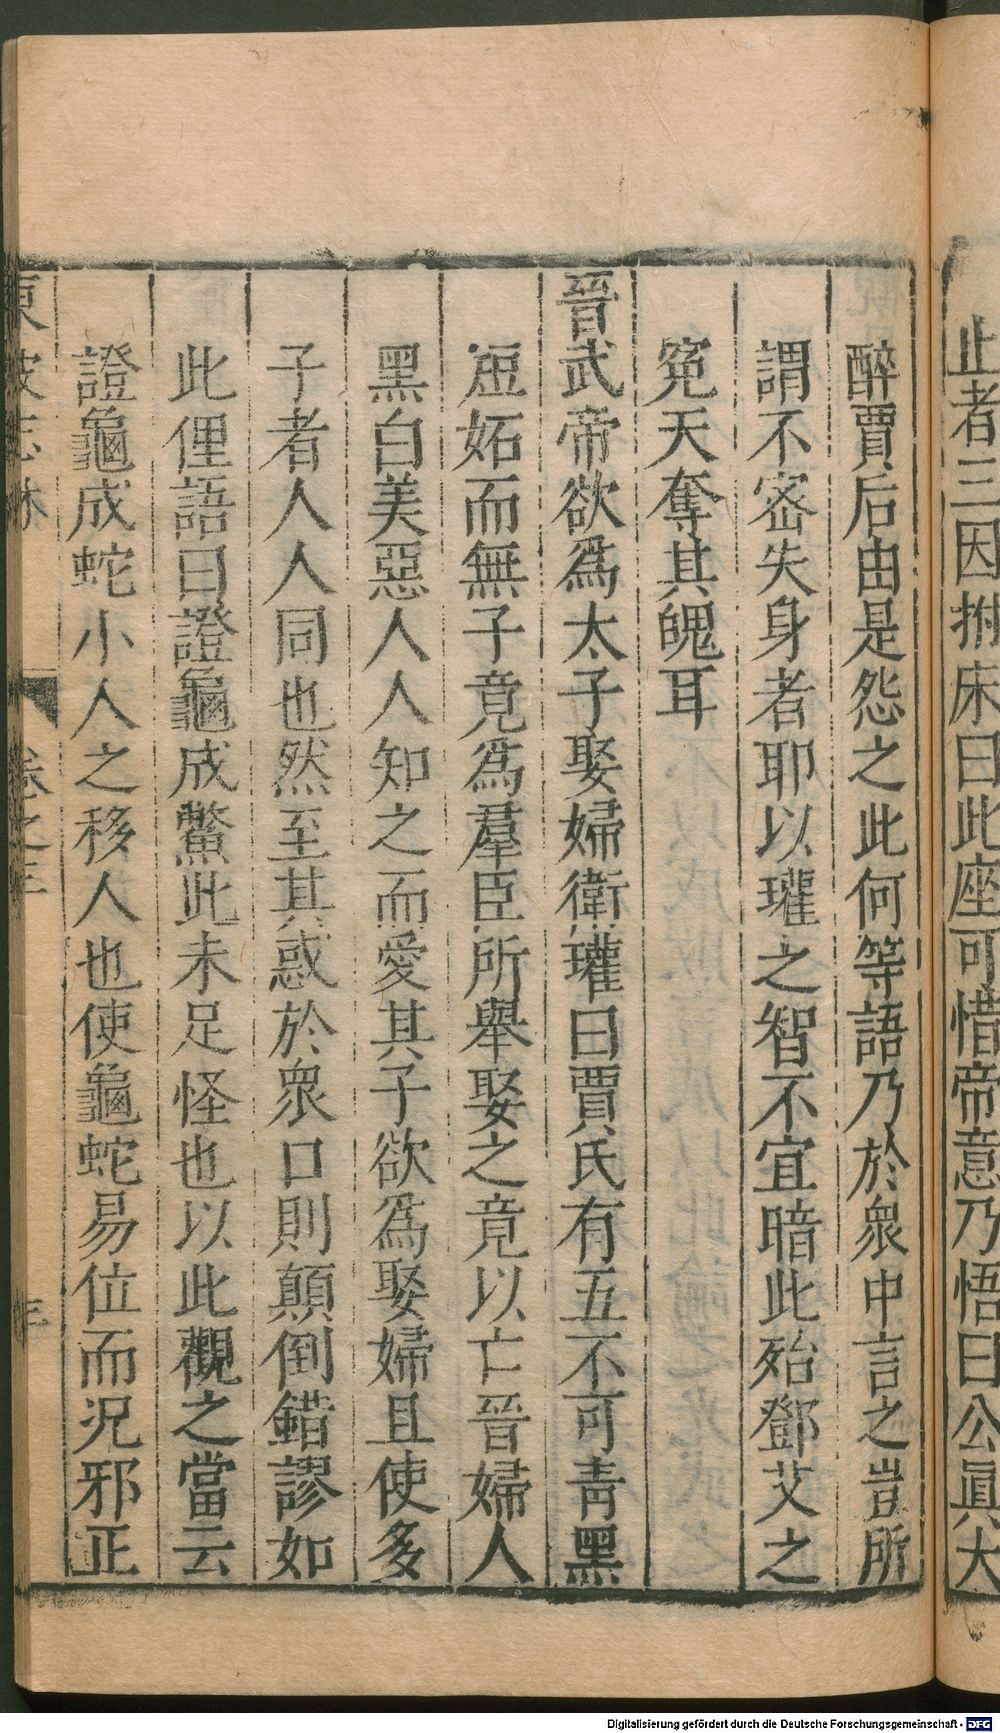 止者三因拊床曰此座可惜帝意乃悟曰公眞大
醉賈后由是怨之此何等語乃於衆中言之豈所
謂不密失身者耶以瓘之智不宜暗此殆鄧艾之
寃天奪其魄耳
晉武帝欲爲太子娶婦衛瓘曰賈氏有五不可青黑
短妬而無子竟爲羣臣所舉娶之竟以亡晉婦人
黑白美惡人人知之而愛其子欲爲娶婦且使多
子者人人同也然至其惑於衆口則顛倒錯謬如
此俚語曰證龜成鱉此未足怪也以此觀之當云
證龜成蛇小人之移人也使龜蛇易位而況邪正
東坡志林 卷之三 三
Digitalisierung gefördert durch die Deutsche Forschungsgemeinschaft - DFG